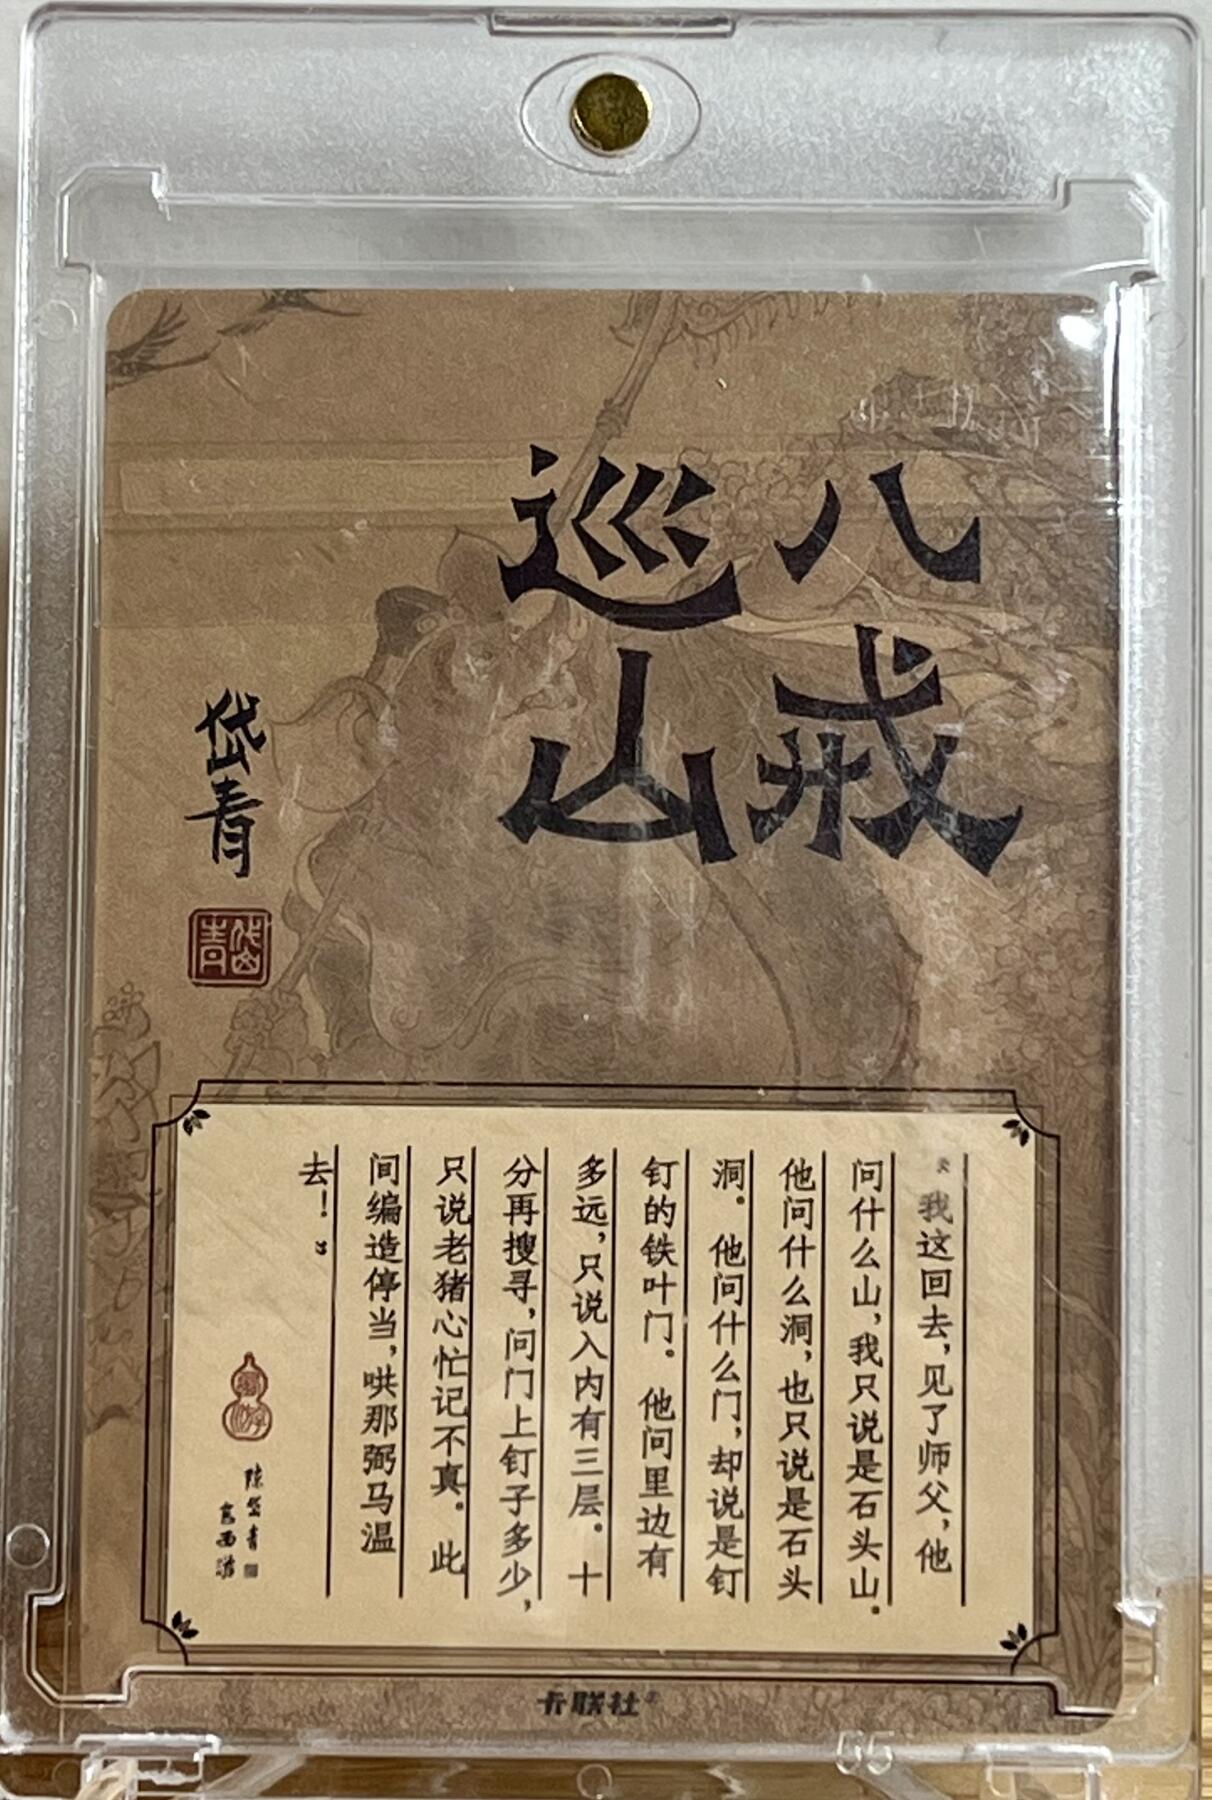 八戒
巡山
岱青
岱青
“我这回去，见了师父，他
问什么山，我只说是石头山。
他问什么洞，也只说是石头
洞。他问什么门，却说是钉
钉的铁叶门。他问里边有
多远，只说入内有三层。十
分再搜寻，问门上钉子多少，
只说老猪心忙记不真。此
间编造停当，哄那弼马温
去！”
陈岱青
画西游
卡联社
55